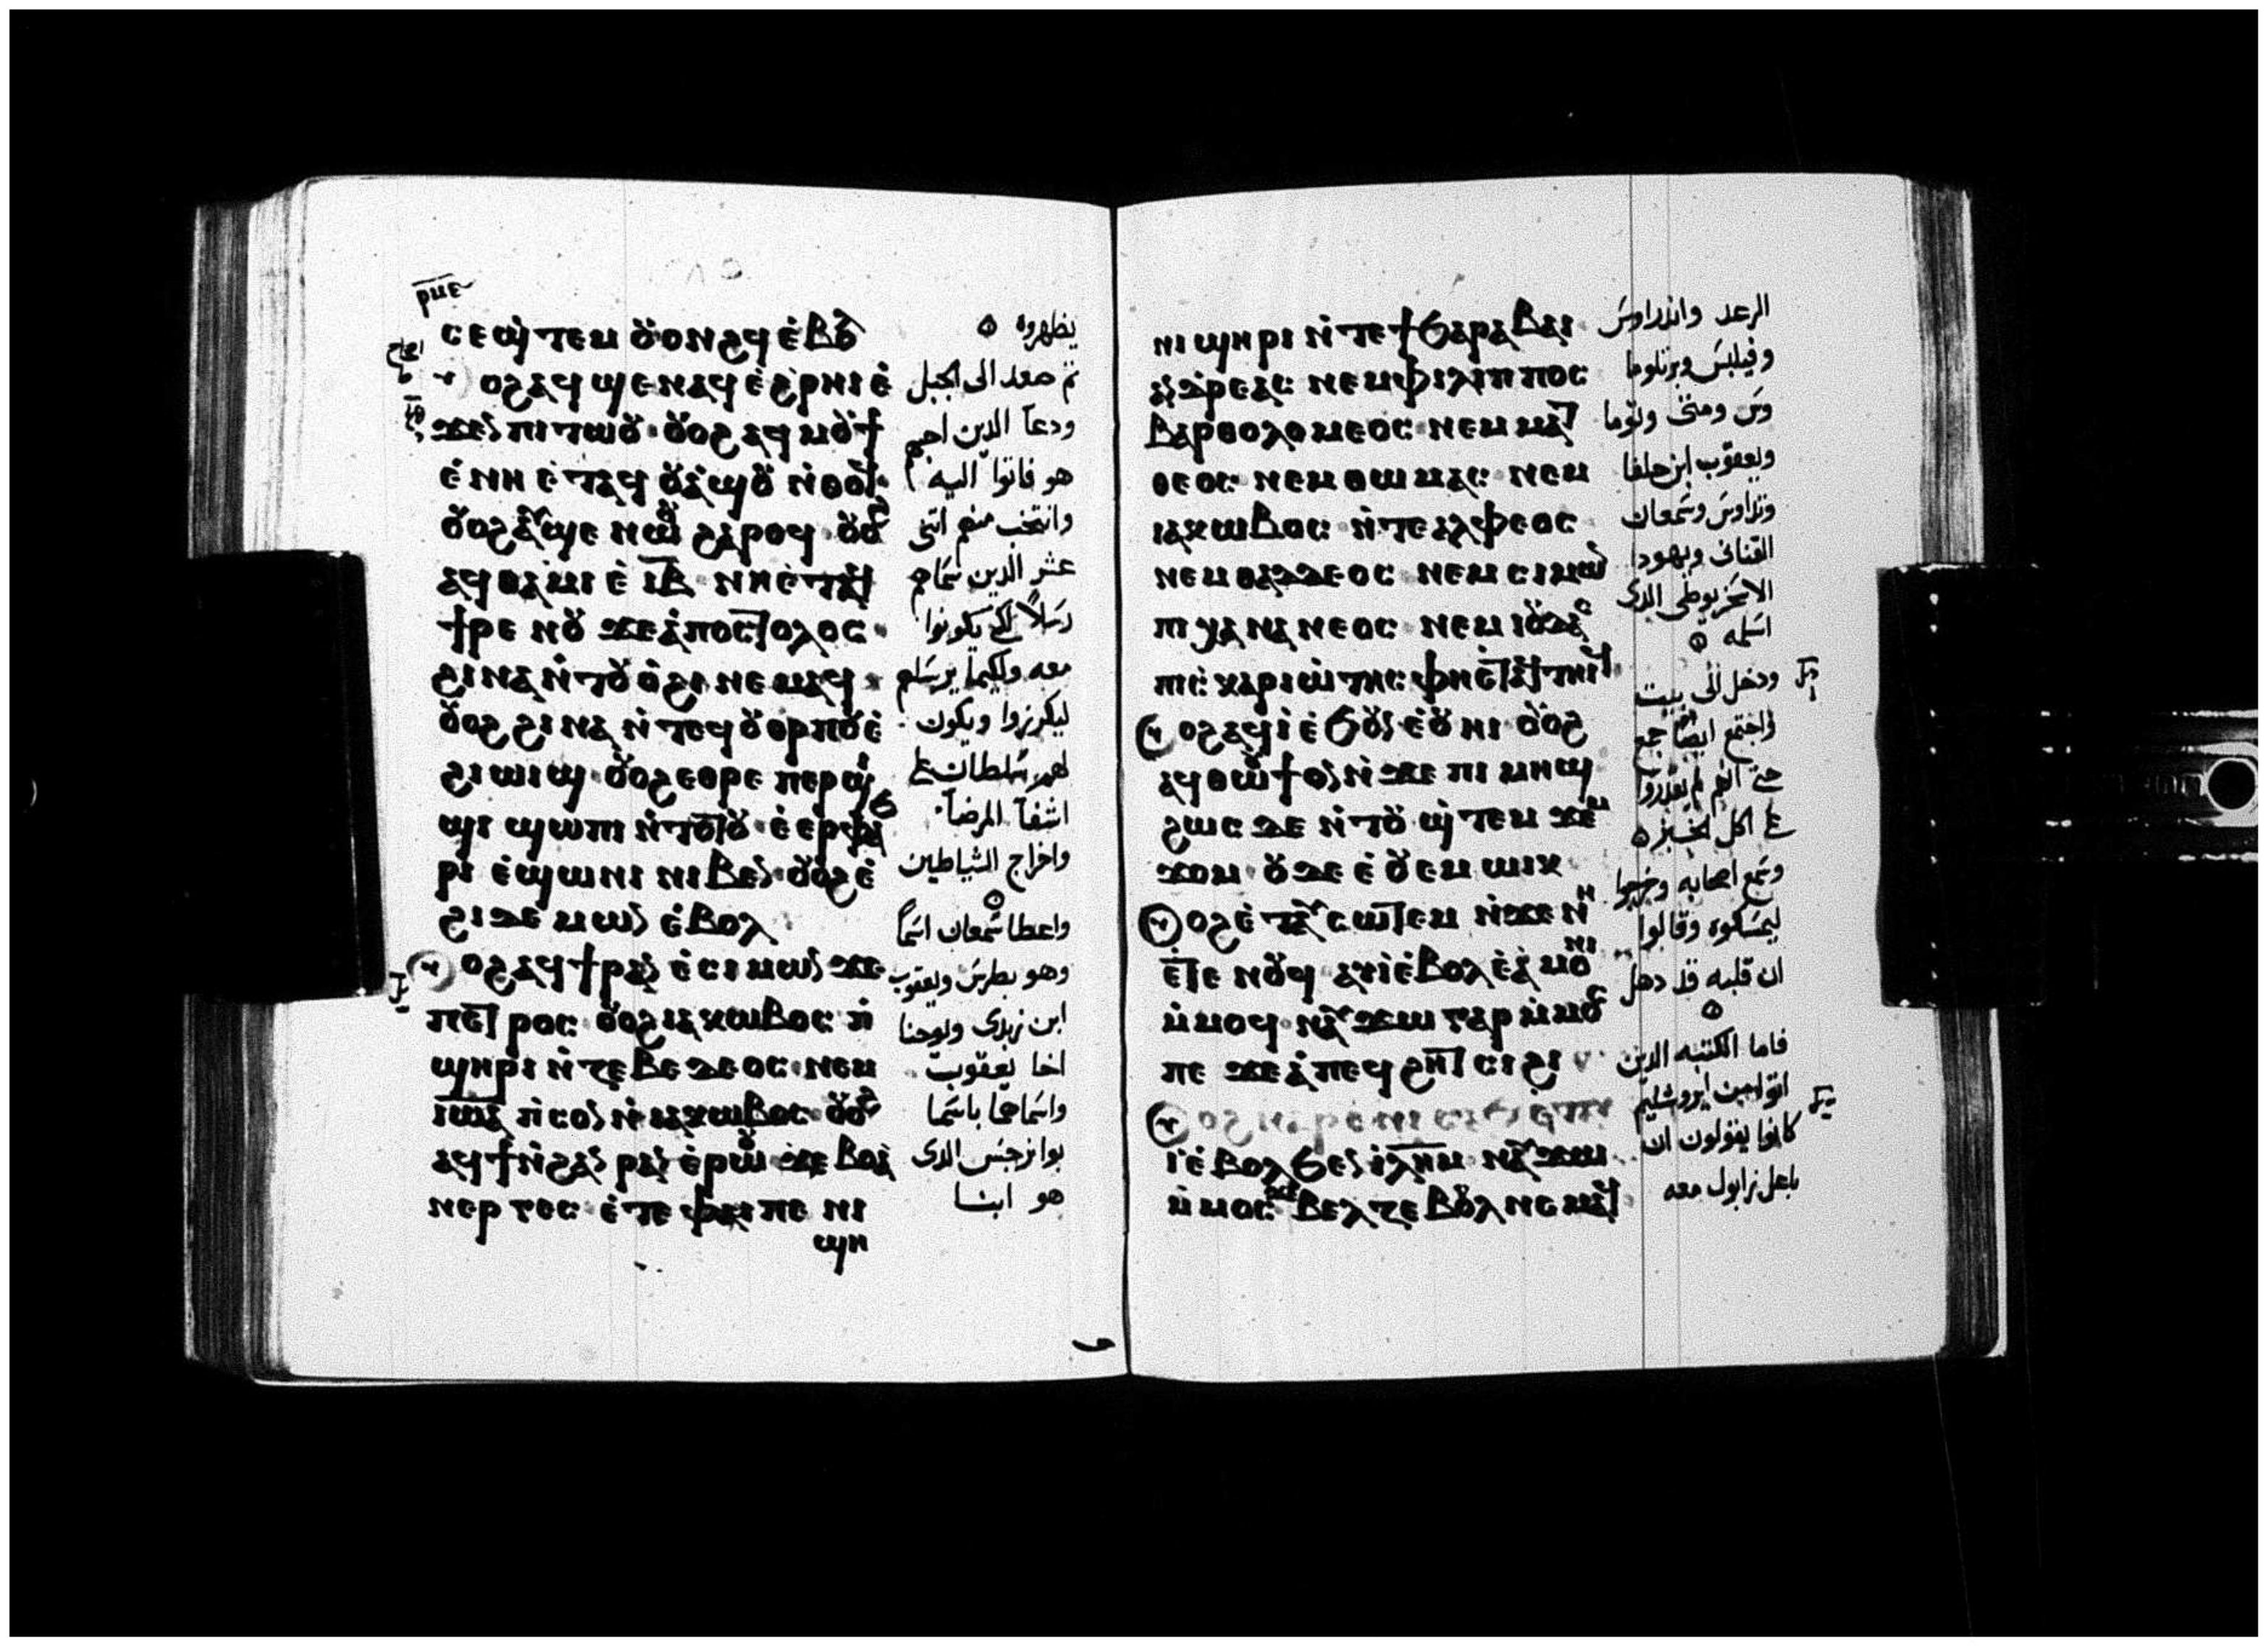 ⲣⲙⲉ
ⲥⲉϣⲧⲉⲙ ⲟⲩⲟⲛϩϥ ⲉⲃⲟⲗ
ⲟϩ ⲁϥϣⲉⲛⲁϥ ⲉϩⲣⲏⲓ ⲉ
ϫⲉⲛ ⲡⲓⲧⲱⲟⲩ ⲟⲩⲟϩ ⲁϥⲙⲟⲩϯ
ⲉⲛⲏ ⲉⲧⲁϥⲟⲩⲁϣⲟⲩ ⲛⲑⲟϥ
ⲟⲩⲟϩ ⲁⲩϣⲉ ⲛⲱⲟⲩ ϩⲁⲣⲟϥ ⲟⲩⲟϩ
ⲁϥⲑⲁⲙⲓⲉ ⲓⲃ ⲛⲏⲉⲧⲁϥ
ϯⲣⲉⲛⲟⲩ ϫⲉ ⲁⲡⲟⲥⲧⲟⲗⲟⲥ
ϩⲓⲛⲁ ⲛⲧⲟⲩⲟϩⲓ ⲛⲉⲙⲁϥ
ⲟⲩⲟϩ ϩⲓⲛⲁ ⲛⲧⲉϥⲟⲩⲟⲣⲡⲟⲩ ⲉ
ϩⲓⲱⲓϣ ⲟⲩⲟϩ ⲉⲑⲣⲉ ⲡⲉⲣϣⲓ
ϣⲓ ϣⲱⲡⲓ ⲛⲧⲟⲧⲟⲩ ⲉⲉⲣⲫⲁϧ
ⲣⲓ ⲉϣⲱⲛⲓ ⲛⲓⲃⲉⲛ ⲟⲩⲟϩ ⲉ
ϩⲓ ⲇⲉⲙⲱⲛ ⲉⲃⲟⲗ
ⲟϩ ⲁϥϯⲣⲁⲛ ⲉⲥⲓⲙⲱⲛ ϫⲉ
ⲡⲉⲧⲣⲟⲥ ⲟⲩⲟϩ ⲓⲁⲕⲱⲃⲟⲥ ⲡ
ϣⲏⲣⲓ ⲛⲍⲉⲃⲉⲇⲉⲟⲥ ⲛⲉⲙ
ⲓⲱⲁ ⲡⲥⲟⲛ ⲛⲓⲁⲕⲱⲃⲟⲥ ⲟⲩⲟϩ
ⲁϥϯ ⲛϩⲁⲛⲣⲁⲛ ⲉⲣⲱⲟⲩ ϫⲉ ⲃⲟⲁ
ⲛⲉⲣⲅⲉⲥ ⲉⲧⲉ ⲫⲁⲓ ⲡⲉ ⲛⲓ
ϣⲏ
يظهروه
ثم صعد الى الجبل
ودعا الدين احبهم
هو فاتوا اليه
وانتخب منهم اثنى
عشر الدين سماهم
رسلاً لكى يكونوا
معه ولكيما يرسلهم
ليكرزوا ويكون
لهم سلطان على
اشفا المرضا
واخراج الشياطين
واعطا سمعان اسماً
وهو بطرس ويعقوب
ابن زبدى ويوحنا
اخا يعقوب
واسماهما باسما
بوانرجس الدى
هو ابنا
ⲛⲓϣⲏⲣⲓ ⲛⲧⲉ ϯϧⲁⲣⲁⲃⲁⲓ
ⲁⲛⲇⲣⲉⲁⲥ ⲛⲉⲙ ⲫⲓⲗⲓⲡⲡⲟⲥ
ⲃⲁⲣⲑⲟⲗⲟⲙⲉⲟⲥ ⲛⲉⲙ ⲙⲁⲧ
ⲑⲉⲟⲥ ⲛⲉⲙ ⲑⲱⲙⲁⲥ ⲛⲉⲙ
ⲓⲁⲕⲱⲃⲟⲥ ⲛⲧⲉ ⲁⲗⲫⲉⲟⲥ
ⲛⲉⲙ ⲑⲁⲇⲇⲉⲟⲥ ⲛⲉⲙ ⲥⲓⲙⲱⲛ
ⲡⲓⲕⲁⲛⲁⲛⲉⲟⲥ ⲛⲉⲙ ⲓⲟⲩⲇⲁⲥ
ⲡⲓⲥⲕⲁⲣⲓⲱⲧⲏⲥ ⲫⲏⲉⲧⲁϥⲧⲏⲓϥ
ⲟϩ ⲁϥⲓ ⲉϧⲟⲩⲛ ⲉⲟⲩⲏⲓ ⲟⲩⲟϩ
ⲁϥⲑⲱⲟⲩϯ ⲟⲛ ⲛϫⲉ ⲡⲓⲙⲏϣ
ϩⲱⲥ ⲇⲉ ⲛⲧⲟⲩ ϣⲧⲉⲙ ϫⲉⲙ
ϫⲟⲙ ⲟⲩⲇⲉ ⲉⲟⲩⲉⲙ ⲱⲓⲕ
ⲟϩ ⲉⲧⲁⲩⲥⲱⲧⲉⲙ ⲛϫⲉ ⲛⲏ
ⲉⲧⲉ ⲛⲟⲩϥ ⲁⲩⲓ ⲉⲃⲟⲗ ⲉⲁⲙⲟⲛⲓ
ⲙⲙⲟϥ ⲛⲁⲩϫⲱ ⲅⲁⲣ ⲙⲙⲟⲥ
ⲡⲉ ϫⲉ ⲁ ⲡⲉϥϩⲏⲧ ⲥⲓϩⲓ
ⲓ ⲉⲃⲟⲗ ϧⲉⲛ ⲓⲗⲏⲙ ⲛⲁⲩϫⲱ
ⲙⲙⲟⲥ ϫⲉ ⲃⲉⲗⲍⲉⲃⲟⲩⲗ ⲛⲉⲙⲁϥ
الرعد واندراوس
وفيلبس وبرتلوما
وس ومتى وتوما
ويعقوب ابن حلفا
وتداوس وسمعان
القنانى ويهودا
الاسخريوطى الدى
اسلمه
ودخل الى بيت
واجتمع ايضاً جمع
حتى انهم لم يقدروا
على اكل الخبز
وسمع اصحابه وخرجوا
ليمسكوه وقالوا
ان قلبه قد دهل
فاما الكتبه الدين
اتوا من ايروشليم
كانوا يقولون ان
باعل زابول معه